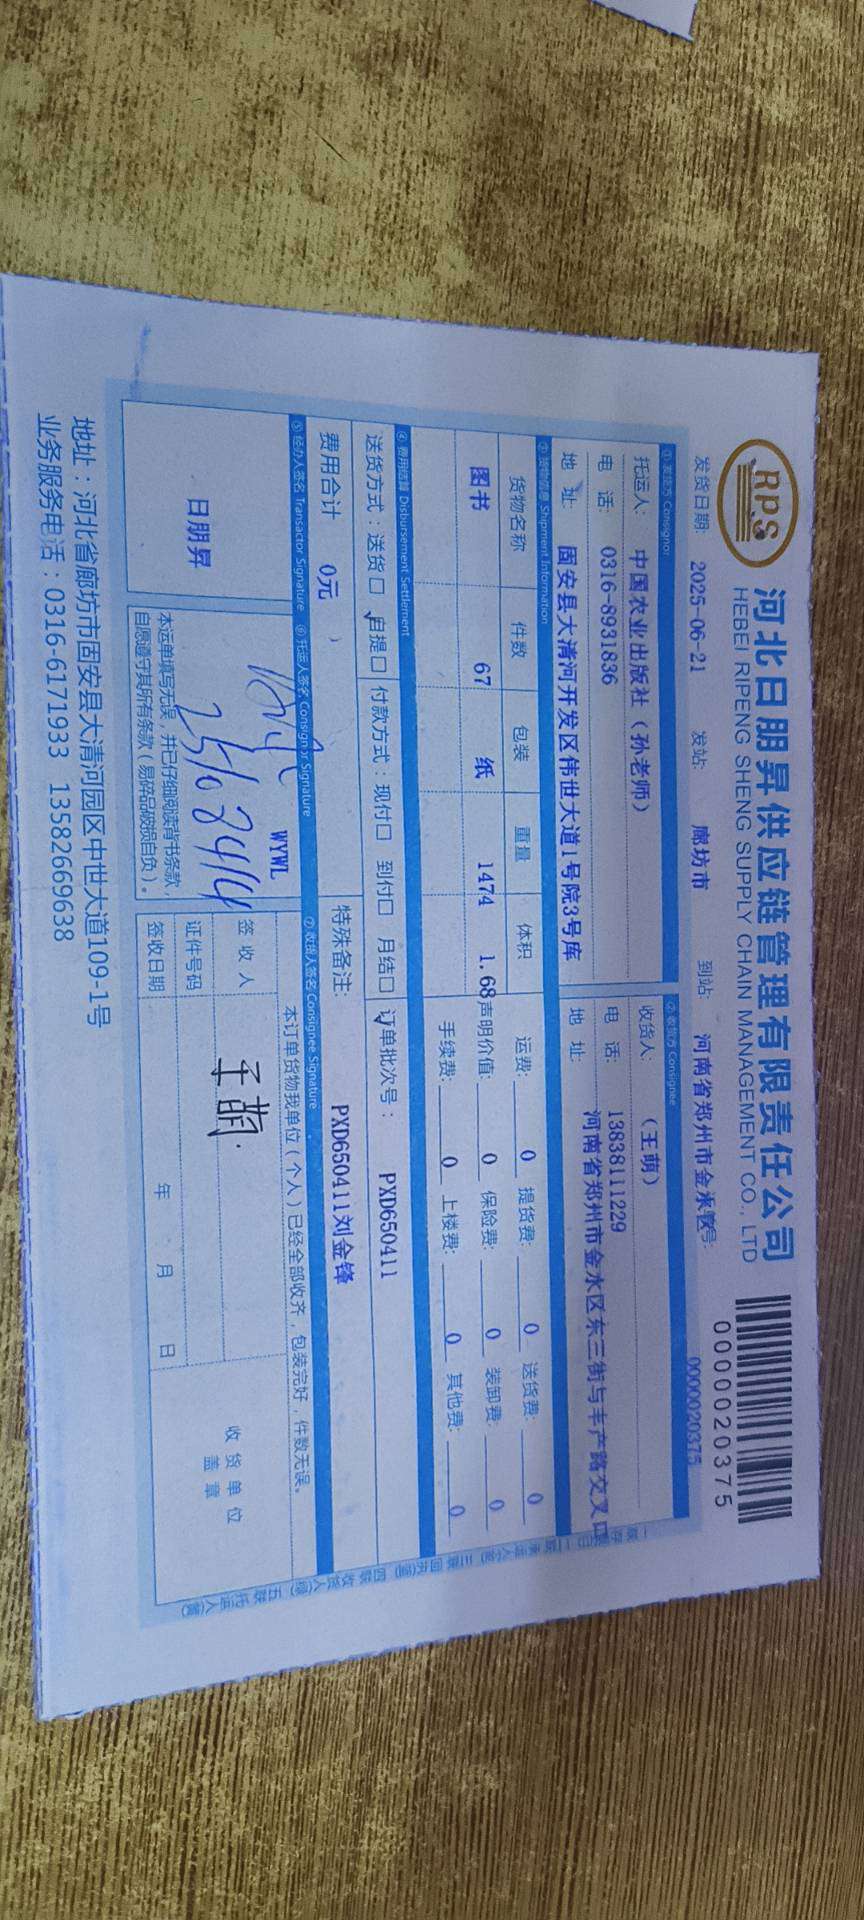 RPS 河北日朋昇供应链管理有限责任公司
HEBEI RIPENG SHENG SUPPLY CHAIN MANAGEMENT CO., LTD
0000020375
发货日期: 2025-06-21 发站: 廊坊市 到站 河南省郑州市金水区 号: 0000020375
① 发货方 Consignor ② 收货方 Consignee
托运人: 中国农业出版社（孙老师） 收货人: （王萌）
电 话: 0316-8931836 电 话: 13838111229
地 址: 固安县大清河开发区伟世大道1号院3号库 地 址: 河南省郑州市金水区东三街与丰产路交叉口
③ 货物信息 Shipment Information
货物名称 件数 包装 重量 体积 运费: 0 提货费: 0 送货费: 0
图书 67 纸 1474 1.68 声明价值: 0 保险费: 0 装卸费: 0
手续费: 0 上楼费: 0 其他费: 0
④ 费用结算 Disbursement Settlement
送货方式：送货□ 自提□ 付款方式：现付□ 到付□ 月结□ 订单批次号： PXD650411
费用合计 0元 特殊备注: PXD650411刘金锋
⑤ 经办人签名 Transactor Signature ⑥ 托运人签名 Consignor Signature ⑦ 收货人签名 Consignee Signature
日朋昇
WYWL
本运单填写无误，并已仔细阅读背书条款，
自愿遵守其所有条款（易碎品破损自负）。
本订单货物我单位（个人）已经全部收齐，包装完好，件数无误。
签 收 人 王萌
证件号码
签收日期 年 月 日
收 货 单 位
盖 章
地址：河北省廊坊市固安县大清河园区中世大道109-1号
业务服务电话：0316-6171933 13582669638